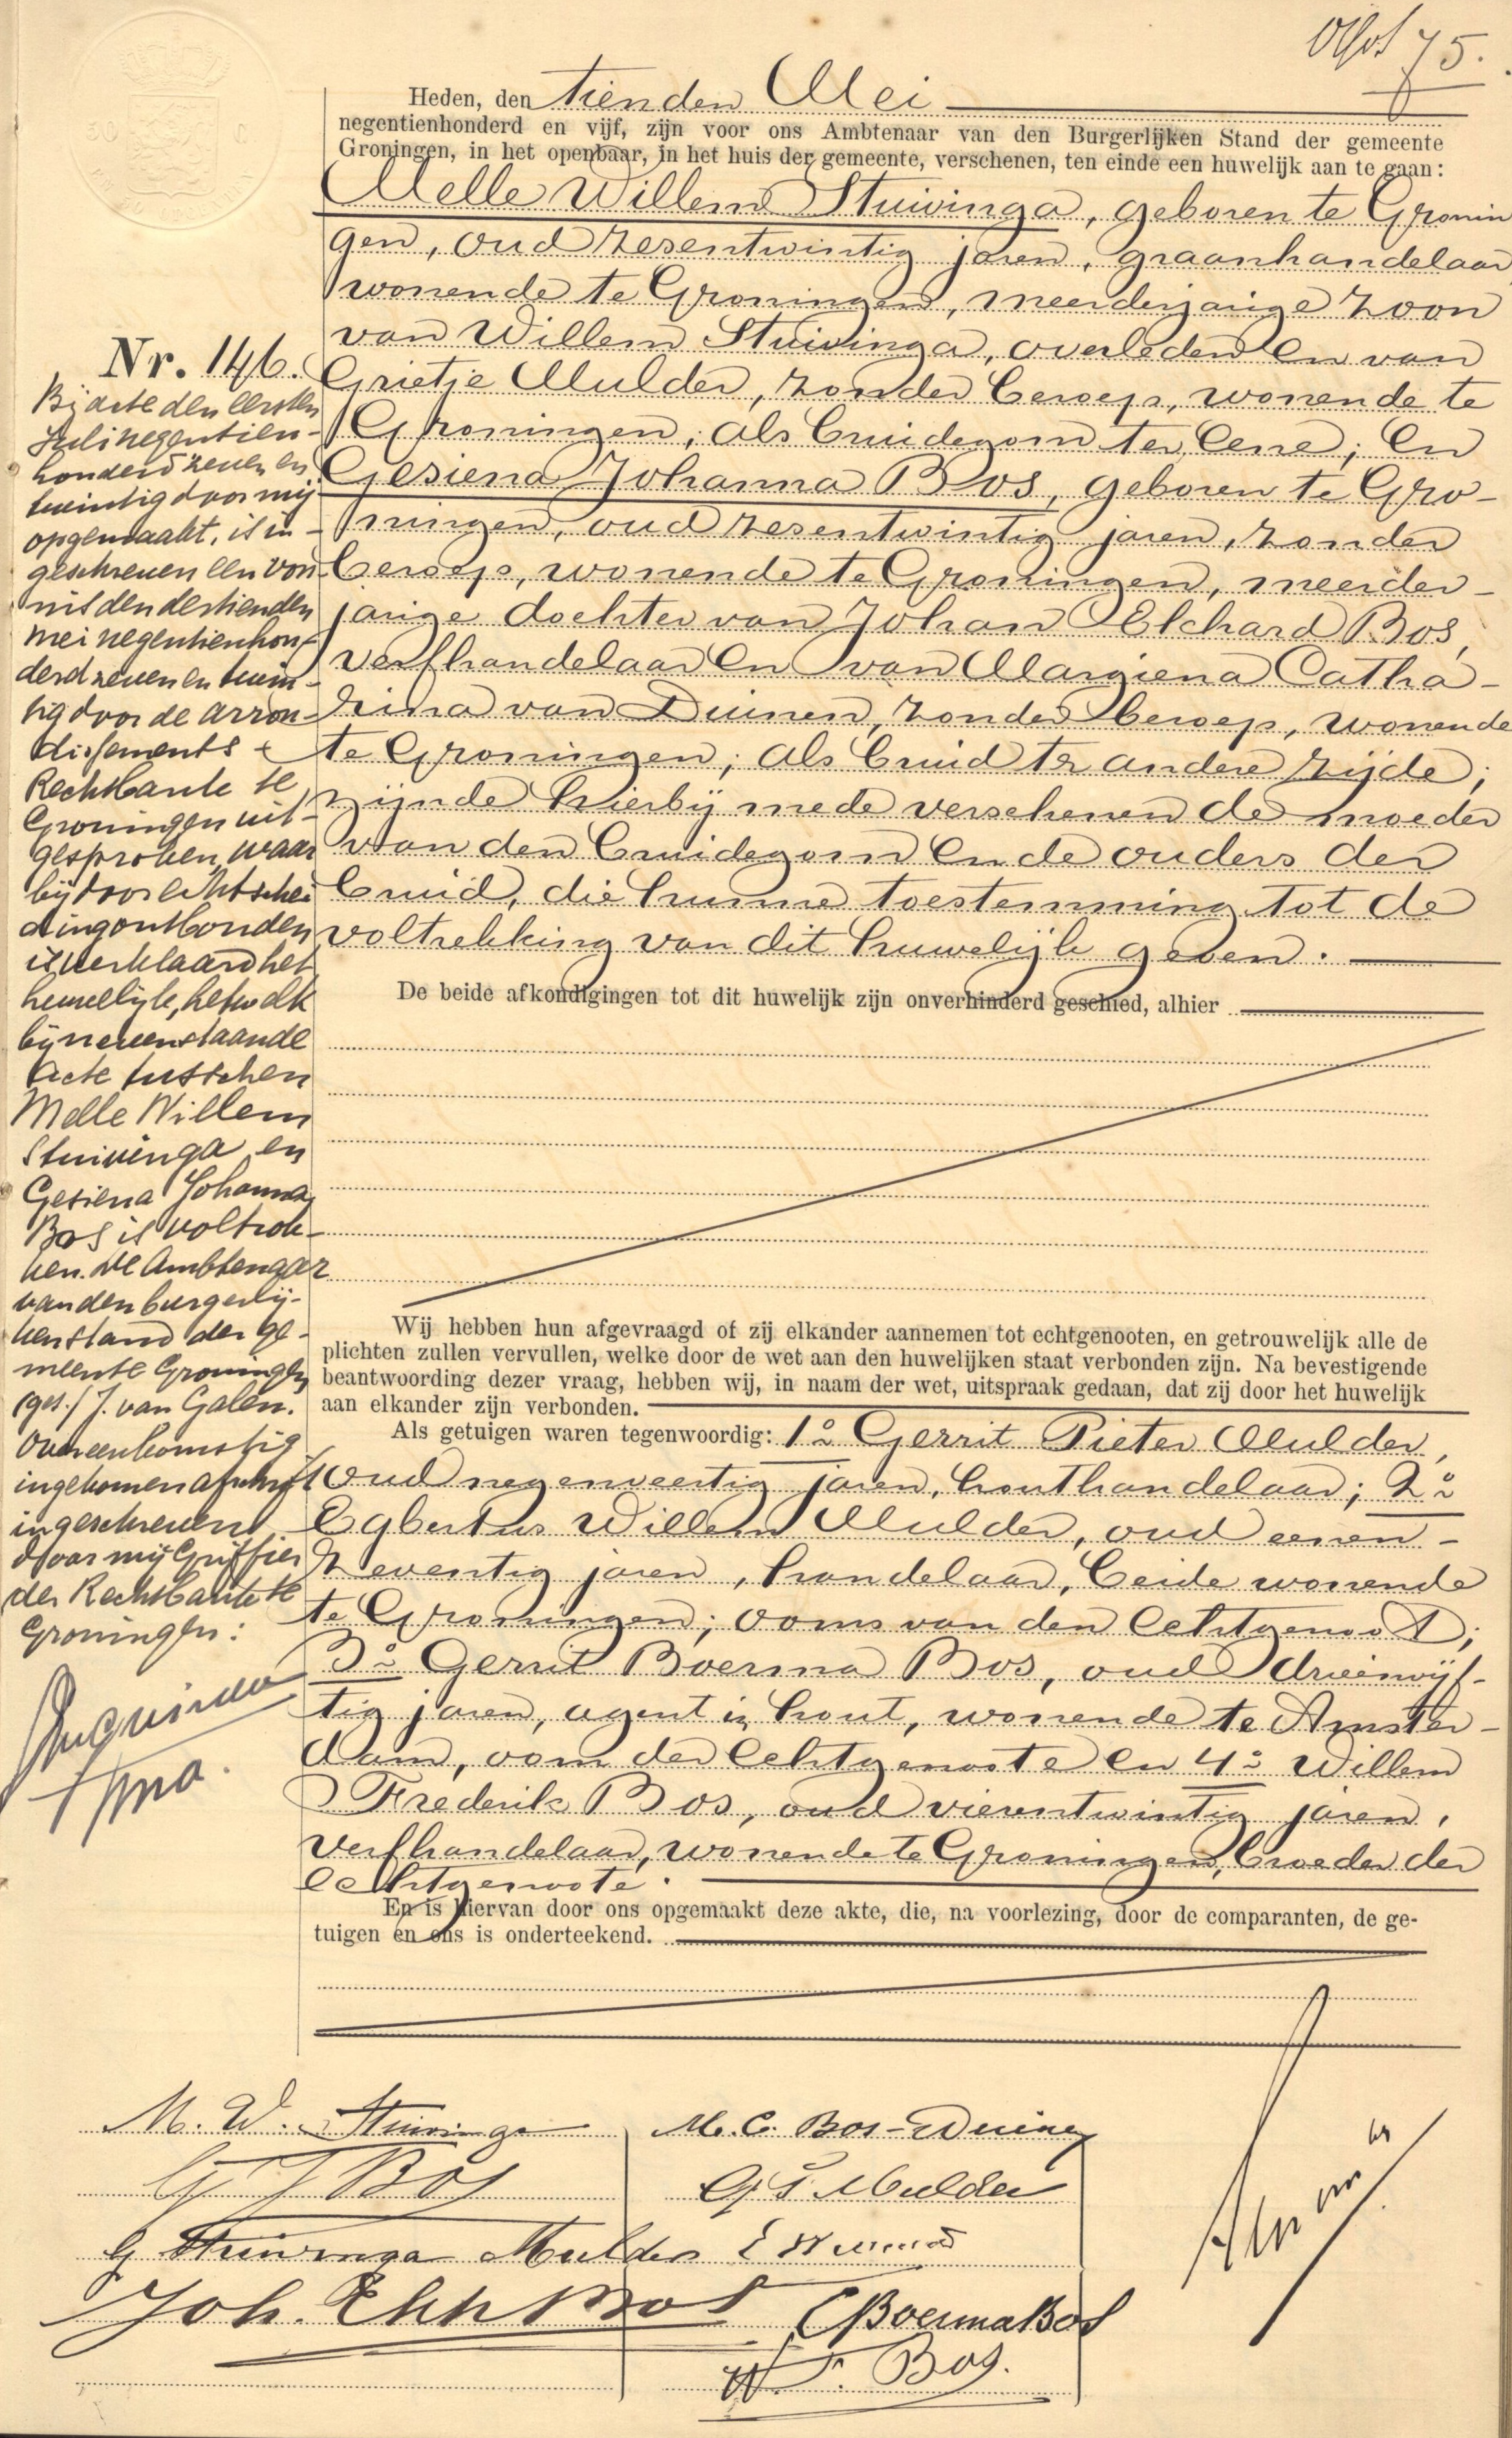 75.
Heden, den tienden Mei
negentienhonderd en vijf, zijn voor ons Ambtenaar van den Burgerlijken Stand der gemeente
Groningen, in het openbaar, in het huis der gemeente, verschenen, ten einde een huwelijk aan te gaan:
Melle Willem Stuivinga, geboren te Gronin
gen, oud zesentwintig jaren, graanhandelaar
wonende te Groningen, meerderjarige zoon
van Willem Stuivinga, overleden en van
Grietje Mulder, zonder beroep, wonende te
Groningen; als bruidegom ter eene; en
Gesiena Johanna Bos, geboren te Gro-
ningen, oud zesentwintig jaren, zonder
beroep, wonende te Groningen, meerder-
jarige dochter van Johan Elchard Bos,
verfhandelaar en van Margiena Catha-
rina van Duinen, zonder beroep, wonende
te Groningen; als bruid ter andere zijde;
zijnde hierbij mede verschenen de moeder
van den bruidegom en de ouders der
bruid, die hunne toestemming tot de
voltrekking van dit huwelijk geven.
De beide afkondigingen tot dit huwelijk zijn onverhinderd geschied, alhier
Wij hebben hun afgevraagd of zij elkander aannemen tot echtgenooten, en getrouwelijk alle de
plichten zullen vervullen, welke door de wet aan den huwelijken staat verbonden zijn. Na bevestigende
beantwoording dezer vraag, hebben wij, in naam der wet, uitspraak gedaan, dat zij door het huwelijk
aan elkander zijn verbonden.
Als getuigen waren tegenwoordig: 1o Gerrit Pieter Mulder,
oud negenveertig jaren, houthandelaar; 2o
Egbertus Willem Mulder, oud eenen-
zeventig jaren, handelaar, beide wonende
te Groningen; ooms van den echtgenoot;
3o Gerrit Boerma Bos, oud drieënvijf-
tig jaren, agent in hout, wonende te Amster-
dam, oom der echtgenoote en 4o Willem
Frederik Bos, oud vierentwintig jaren,
verfhandelaar, wonende te Groningen, broeder der
echtgenoote.
En is hiervan door ons opgemaakt deze akte, die, na voorlezing, door de comparanten, de ge-
tuigen en ons is onderteekend.
Nr. 146.
Bij acte den eersten
Juli negentien-
honderd zeven en
twintig door mij
opgemaakt, is in-
geschreven een von-
nis den dertienden
mei negentienhon-
derd zeven en twin-
tig door de Arron-
dissements-
Rechtbank te
Groningen uit-
gesproken, waar
bij door echtschei
ding ontbonden
is verklaard het
huwelijk, hetwelk
bij nevenstaande
acte tusschen
Melle Willem
Stuivinga en
Gesiena Johanna
Bos is voltrok-
ken. De Ambtenaar
van den burgerlij-
ken stand der ge-
meente Groningen
(get.) J. van Galen.
Overeenkomstig
ingekomen afschrift
ingeschreven
door mij Griffier
der Rechtbank te
Groningen:
M. W. Stuivinga
G J Bos
G Stuivinga Mulder
Joh. Elch Bos
M. C. Bos-Duinen
G P Mulder
E W Mulder
G Boerma Bos
W. F. Bos.